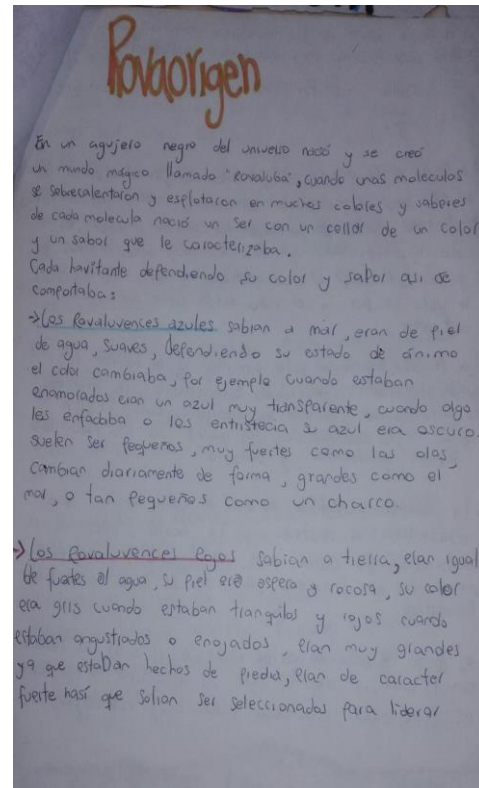 Rovaorigen
En un agujero negro del universo nació y se creó
un mundo mágico llamado "Rovaluba", cuando unas moleculas
se sobrecalentaron y esplotaron en muchos colores y sabores
de cada molecula nació un ser con un collar de un color
y un sabor que le caracterizaba.
Cada havitante defendiendo su color y sabor asi se
comportaba:
->Los Rovaluvences azules sabian a mar, eran de piel
de agua, suaves, defendiendo su estado de ánimo
el color cambiaba, por ejemplo cuando estaban
enamorados eran un azul muy transparente, cuando algo
les enfadaba o les entristecia su azul era oscuro.
suelen ser pequeños, muy fuertes como las olas,
cambian diariamente de forma, grandes como el
mar, o tan pequeños como un charco.
->Los Rovaluvences rojos sabian a tierra, eran igual
de fuertes al agua, su piel era aspera y rocosa, su color
era gris cuando estaban tranquilos y rojos cuando
estaban angustiados o enojados, eran muy grandes
ya que estaban hechos de piedra, eran de caracter
fuerte hasí que solian ser seleccionados para liderar